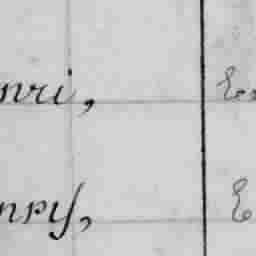 nri, E
nry, E